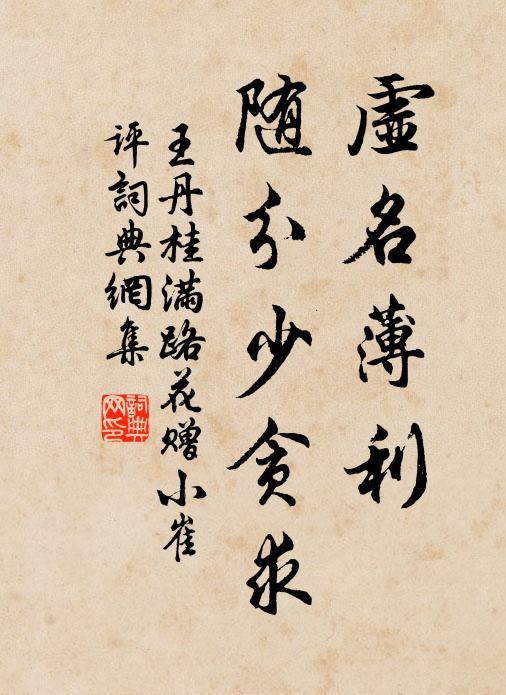 虛名薄利
随分少貪求
王丹桂满路花赠小崔
評詞典網集
詞典
网印